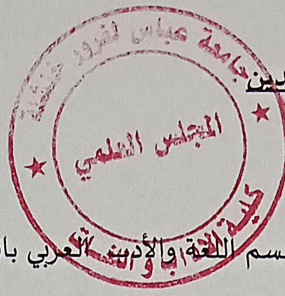 جامعة عباس لغرور خنشلة
دين
المجلس العلمي
كلية الآداب واللغات
سم اللغة والأدب العربي با